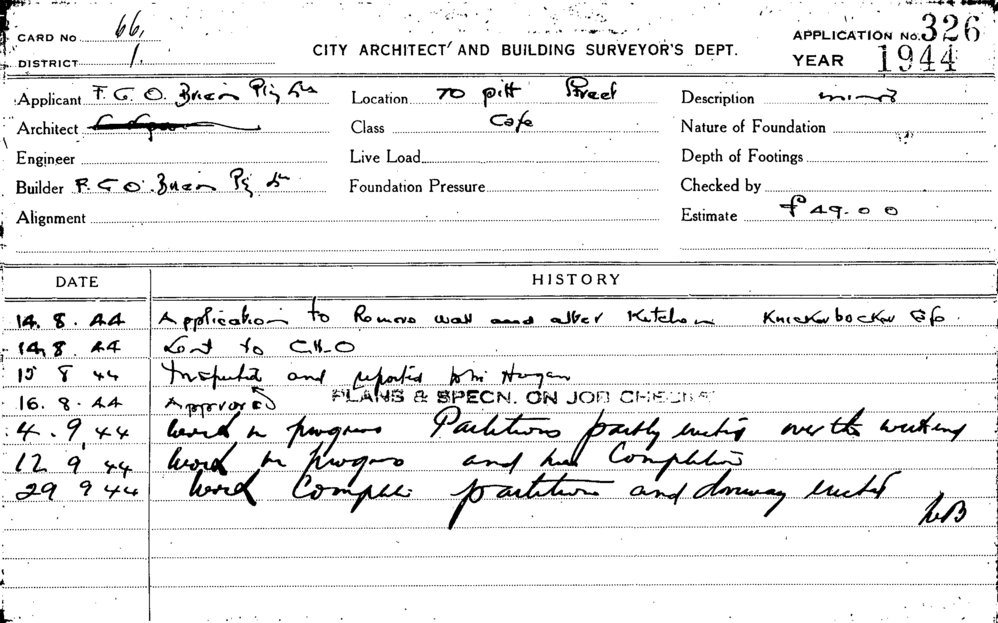 CARD No 66.
APPLICATION No. 326
DISTRICT 1.
CITY ARCHITECT' AND BUILDING SURVEYOR'S DEPT.
YEAR 1944
Applicant F. G. O. Brien Pty Ltd
Location 70 pitt Street
Description minor
Architect
Class Cafe
Nature of Foundation
Engineer
Live Load
Depth of Footings
Builder F. G O. Brien Pty Ltd
Foundation Pressure
Checked by
Alignment
Estimate £49.0 0
DATE
HISTORY
14. 8. 44 Application to Remove wall and alter Kitchen Knickerbocker Cafe.
14. 8. 44 Sent to C.H.O
15 8 44 Inspected and reported Hogan
16. 8. 44 Approved PLANS & SPECN. ON JOB CHECKED
4. 9. 44 Work in progress Partitions partly erected over the weekend
12 9 44 Work in progress and near Completion
29 9 44 Work Complete partitions and doorway erected